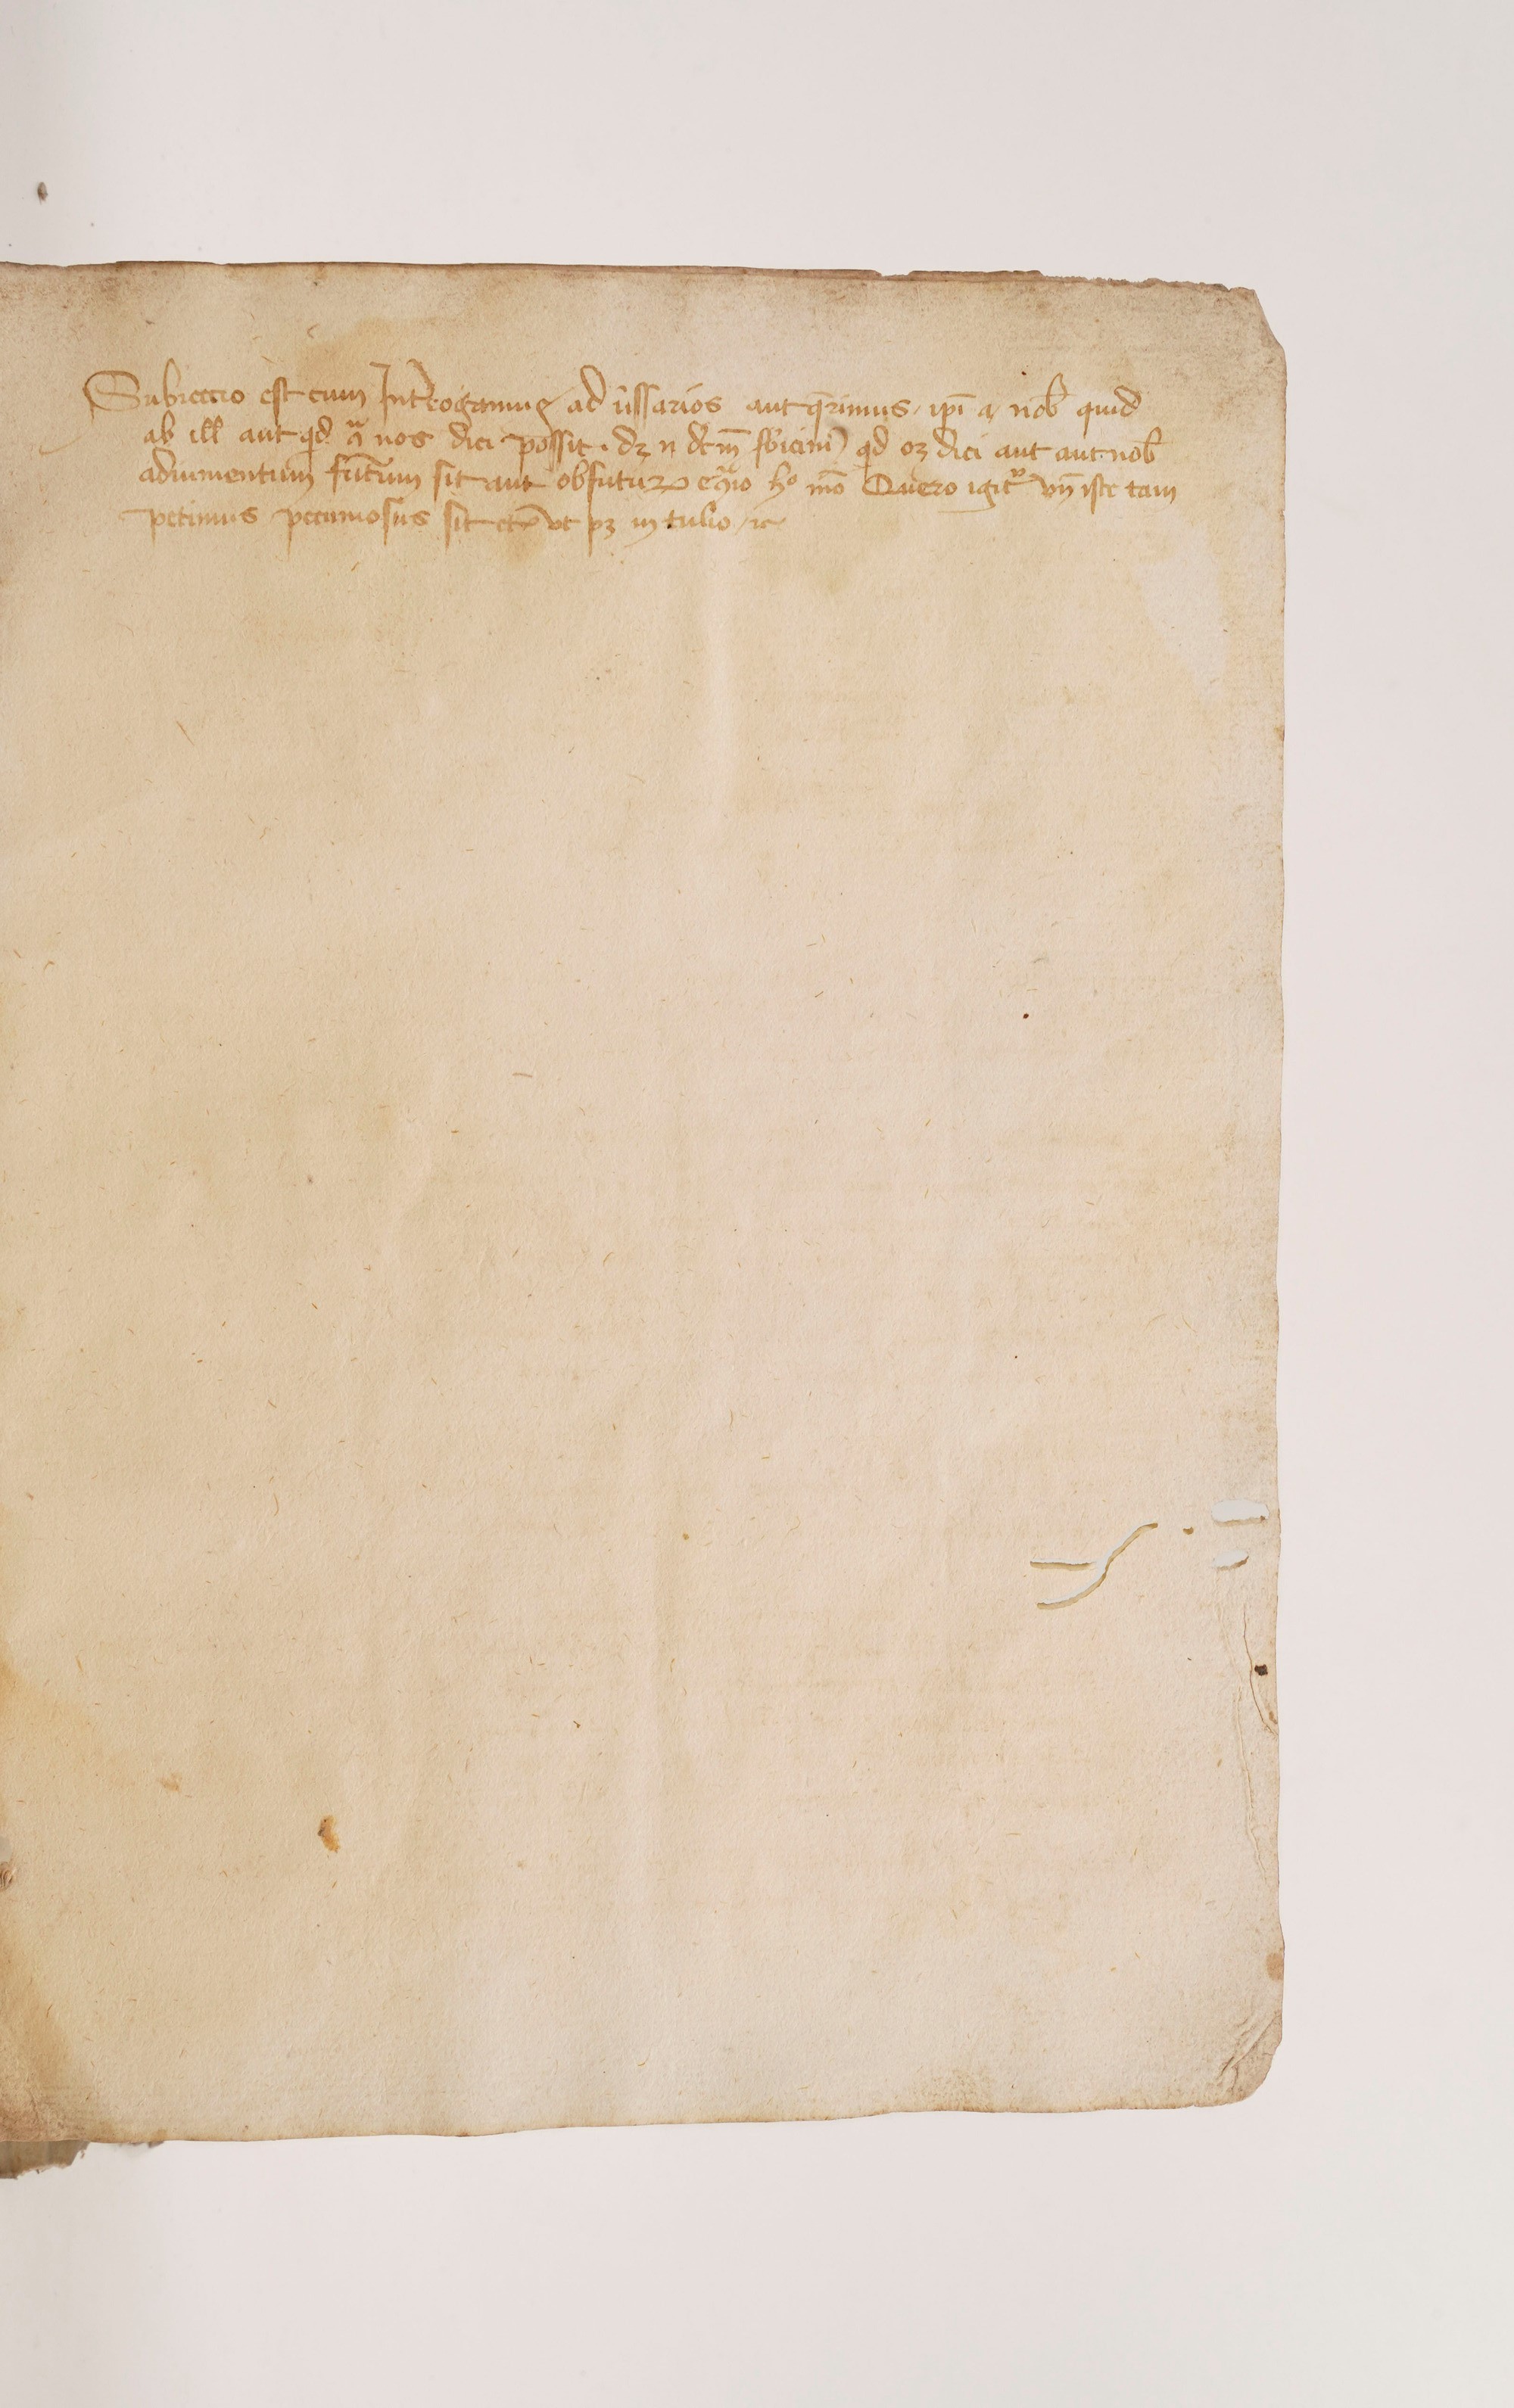 Subiectio est cum Int͛rogamus ad ūssarios aut q̄rimus ip̄i a nob̄ quid
ab ill̄ aut qd ꝯͣ nos dici possit · dꝫ n̄ dc̄m s̄bicim̄ qd oꝫ dici aut aut nob̄
adiumentum̄ futurum sit aut obsuturꝝ ho mō Quero igitᷣ vn̄ iste tam
pecuniosus sit ut pꝫ in tulio ⁊c